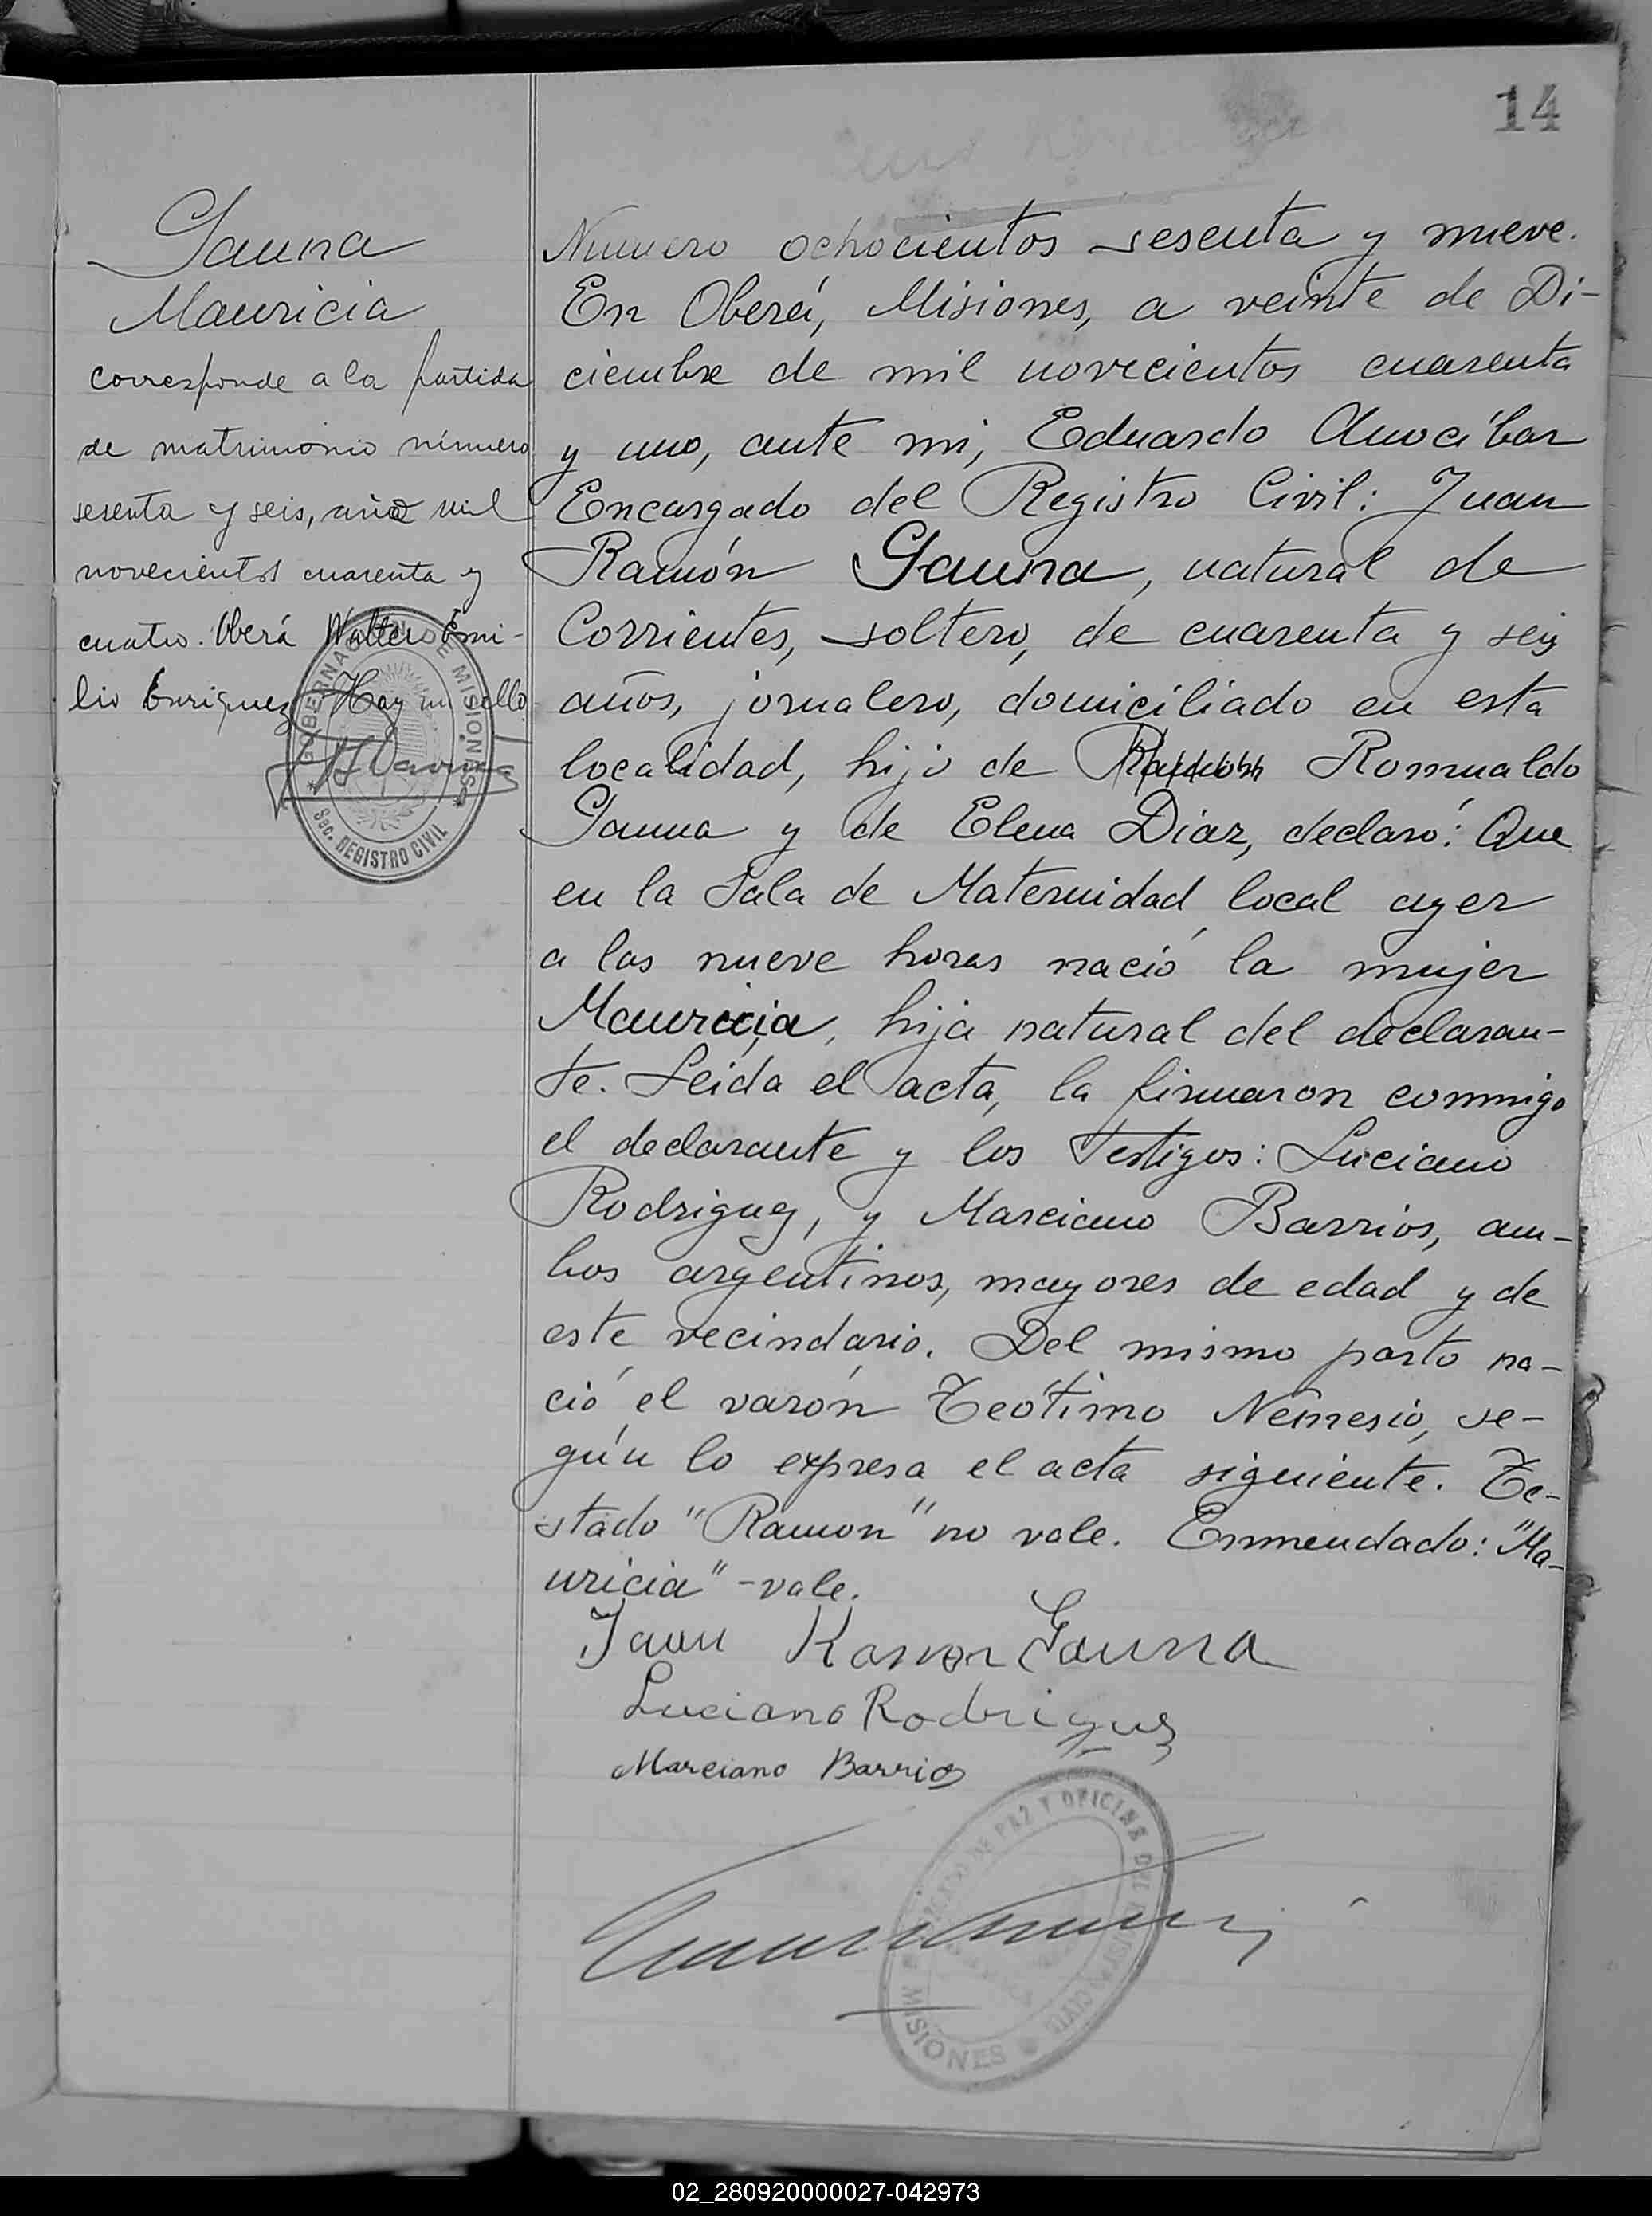 14
Gauna
Mauricia
corresponde a la partida
de matrimonio número
sesenta y seis, año mil
novecientos cuarenta y
cuatro. Oberá Walter Emi-
lio Enriquez Hay un sello
GOBERNACION DE MISIONES
Sec. REGISTRO CIVIL
Numero ochocientos sesenta y nueve.
En Oberá, Misiones, a veinte de Di-
ciembre de mil novecientos cuarenta
y uno, ante mi, Eduardo Amocibar
Encargado del Registro Civil: Juan
Ramón Gauna, natural de
Corrientes, soltero, de cuarenta y seis
años, jornalero, domiciliado en esta
localidad, hijo de Ramon Romualdo
Gauna y de Elena Díaz, declaró: Que
en la Sala de Maternidad local ayer
a las nueve horas nació la mujer
Mauricia, hija natural del declaran-
te. Leida el acta, la firmaron conmigo
el declarante y los testigos: Luciano
Rodriguez, y Marciano Barrios, am-
bos argentinos, mayores de edad y de
este vecindario. Del mismo parto na-
ció el varón Teótimo Nemesio, se-
gún lo expresa el acta siguiente. Te-
stado "Ramon" no vale. Enmendado: "Ma-
uricia" - vale.
Juan Ramon Gauna
Luciano Rodriguez
Marciano Barrios
JUZGADO DE PAZ Y OFICINA DEL REGISTRO CIVIL
MISIONES
02_280920000027-042973